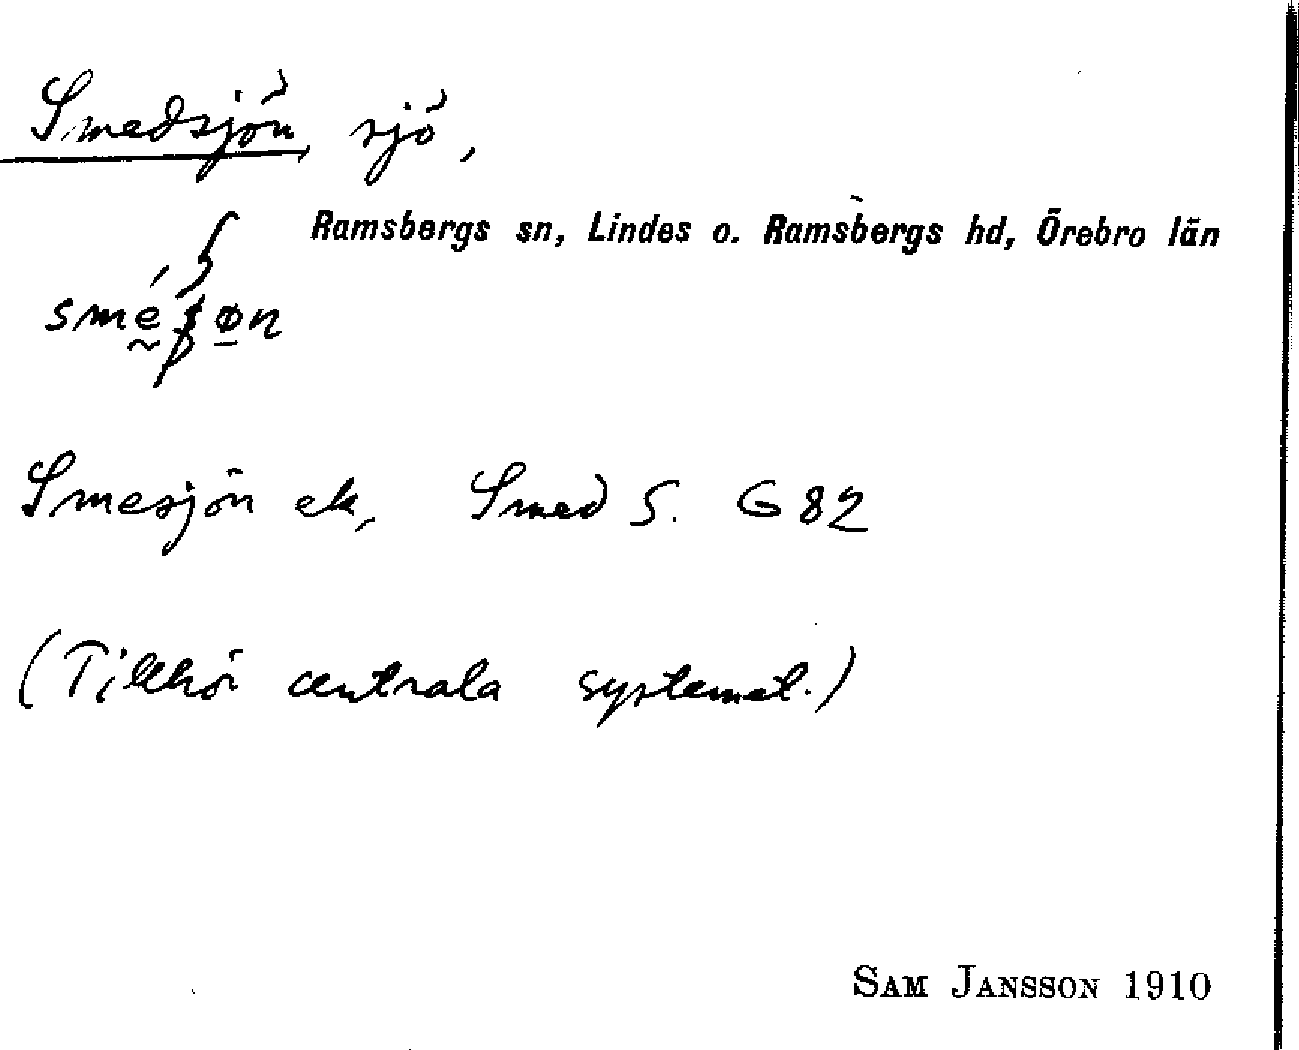 Smedsjön, sjö,
Ramsbergs sn, Lindes o. Ramsbergs hd, Örebro län
Smesjön ek, Smed S. G 82
(Tillhör centrala systemet.)
SAM JANSSON 1910